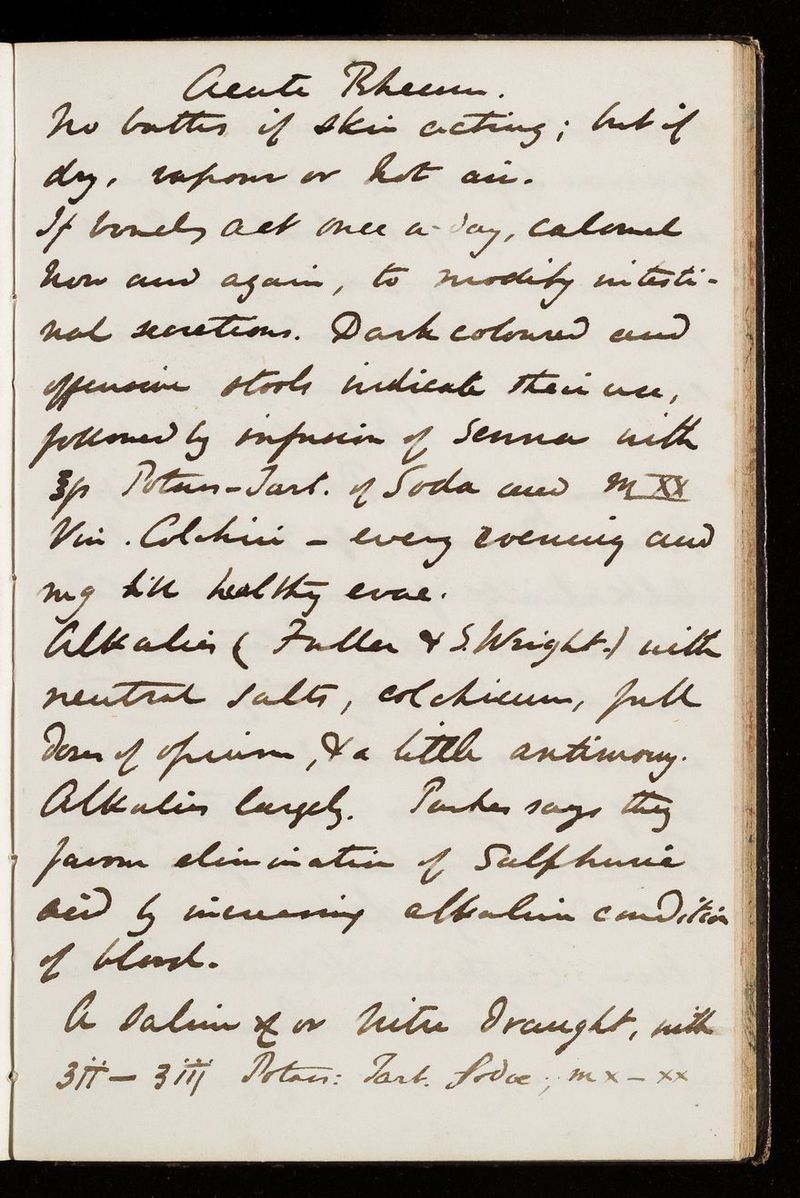 Acute Rheum.
No baths if skin acting; but if
dry, vapour or hot air.
If bowels act once a-day, calomel
now and again, to modify intesti-
nal secretions. Dark coloured and
offensive stools indicate their use,
followed by infusion of Senna with
Potass-Tart. of Soda and ♏ XX
Vin. Colchici - every evening and
mg till healthy evac.
Alkalies (Fuller & S. Wright.) with
neutral salts, colchicum, full
doses of opium, & a little antimony.
Alkalies largely. Parkes says they
favour elimination of Sulphuric
acid by increasing alkaline condition
of blood.
A saline or Nitre draught, with
ʒii - ʒiii Potass: Tart. Sodae; m x - xx